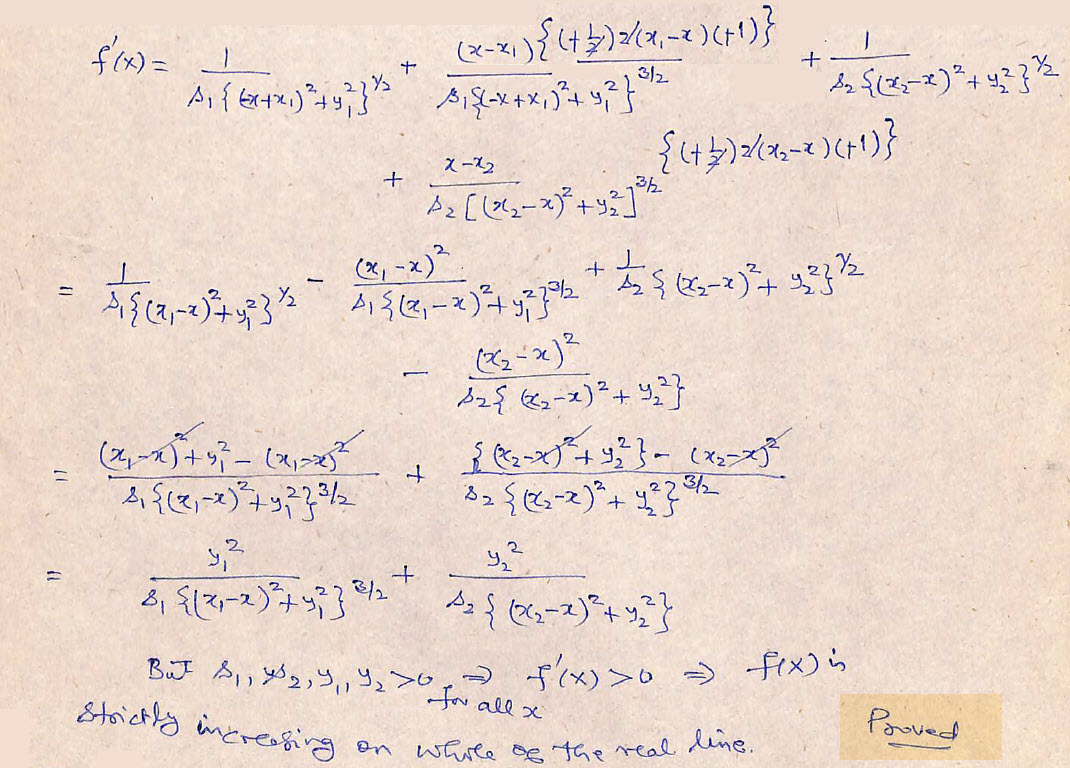 f'(x) = 1 / s₁{(-x+x₁)²+y₁²}^1/2 + (x-x₁){(+1/2)2(x₁-x)(+1)} / s₁{(-x+x₁)²+y₁²}^3/2 + 1 / s₂{(x₂-x)²+y₂²}^1/2
+ x-x₂ / s₂[(x₂-x)²+y₂²]^3/2 {(+1/2)2(x₂-x)(+1)}
= 1 / s₁{(x₁-x)²+y₁²}^1/2 - (x₁-x)² / s₁{(x₁-x)²+y₁²}^3/2 + 1 / s₂{(x₂-x)²+y₂²}^1/2
- (x₂-x)² / s₂{(x₂-x)²+y₂²}
= (x₁-x)²+y₁²-(x₁-x)² / s₁{(x₁-x)²+y₁²}^3/2 + {(x₂-x)²+y₂²}-(x₂-x)² / s₂{(x₂-x)²+y₂²}^3/2
= y₁² / s₁{(x₁-x)²+y₁²}^3/2 + y₂² / s₂{(x₂-x)²+y₂²}
But s₁, s₂, y₁, y₂ >0 ⇒ f'(x) >0 ⇒ f(x) is
for all x
strictly increasing on whole of the real line.
Proved